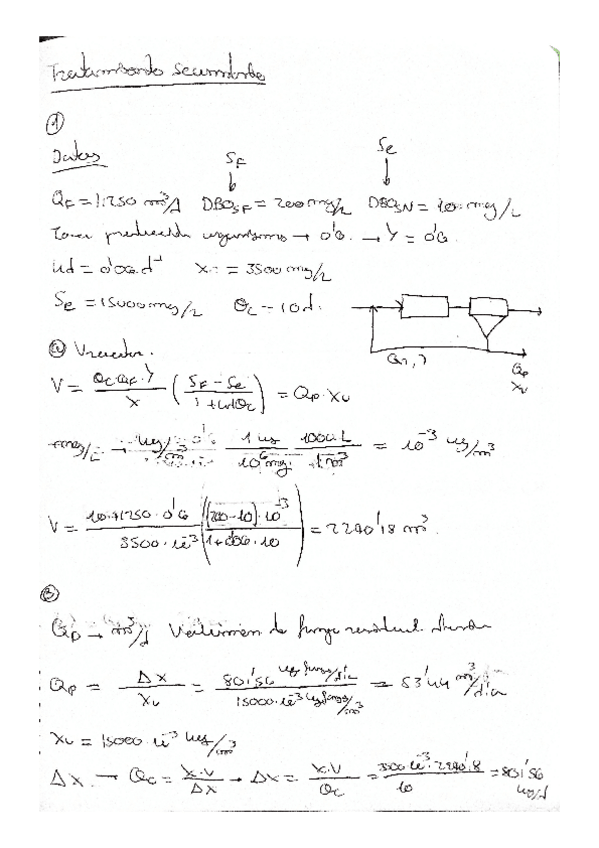 Tratamiento Secundario
①
Datos
SF Se
QF = 11250 m³/d DBO5F = 200 mg/L DBO5N = 10 mg/L
0'6 → Y = 0'6
kd = 0'06 d⁻¹ X = 3500 mg/L
Se = 15000 mg/L Θc = 10 d
ⓐ Vreactor.
Qp
Xv
V = Θc·QF·Y / X ( SF - Se / 1 + kd·Θc ) = Qp·Xv
mg/L → 1 kg / 10⁶ mg · 1000 L / 1 m³ = 10⁻³ kg/m³
V = 10·11250·0'6 / 3500·10⁻³ ( (200-10)·10⁻³ / 1+0'06·10 ) = 2290'18 m³
ⓑ
Qp → m³/d Volumen de fango residual
Qp = ΔX / Xv = 801'56 kg fango/día / 15000·10⁻³ kg fango/m³ = 53'44 m³/día
Xv = 15000·10⁻³ kg/m³
ΔX → Θc = X·V / ΔX → ΔX = X·V / Θc = 3500·10⁻³·2290'18 / 10 = 801'56 kg/d